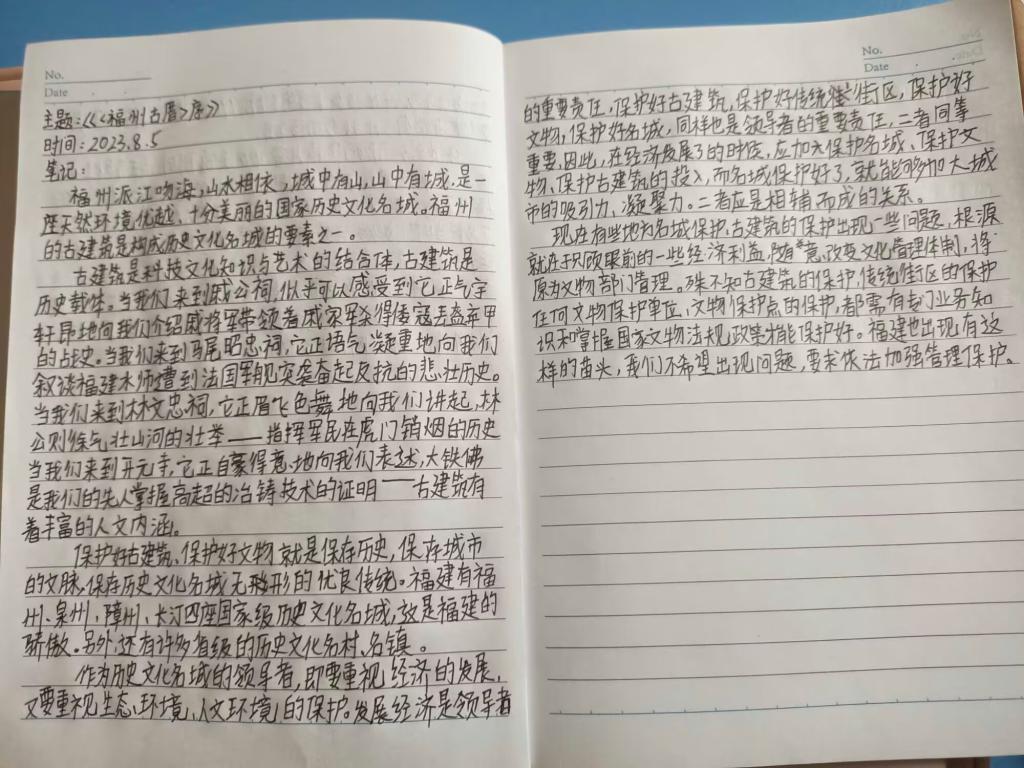 No.
Date
主题:《<福州古厝>序》
时间:2023.8.5
笔记:
福州派江吻海,山水相依,城中有山,山中有城,是一
座天然环境优越、十分美丽的国家历史文化名城。福州
的古建筑是构成历史文化名城的要素之一。
古建筑是科技文化知识与艺术的结合体,古建筑是
历史载体。当我们来到戚公祠,似乎可以感受到它正气宇
轩昂地向我们介绍戚将军带领着戚家军杀得倭寇丢盔弃甲
的占史。当我们来到马尾昭忠祠,它正语气凝重地向我们
叙谈福建水师遭到法国军舰突袭奋起反抗的悲壮历史。
当我们来到林文忠祠,它正眉飞色舞地向我们讲起,林
公则徐气壮山河的壮举——指挥军民在虎门销烟的历史
当我们来到开元寺,它正自豪得意地向我们表述,大铁佛
是我们的先人掌握高超的冶铸技术的证明——古建筑有
着丰富的人文内涵。
保护好古建筑、保护好文物就是保存历史,保存城市
的文脉,保存历史文化名城无形的优良传统。福建有福
州、泉州、障州、长汀四座国家级历史文化名城,这是福建的
骄傲。另外还有许多省级的历史文化名村、名镇。
作为历史文化名城的领导者,即要重视经济的发展,
又要重视生态、环境、人文环境的保护。发展经济是领导者
No.
Date
的重要责任,保护好古建筑,保护好传统街区,保护好
文物,保护好名城,同样也是领导者的重要责任,二者同等
重要。因此,在经济发展了的时候,应加大保护名城、保护文
物、保护古建筑的投入,而名城保护好了,就能够加大城
市的吸引力、凝聚力。二者应是相辅而成的关系。
现在有些地方名城保护、古建筑的保护出现一些问题,根源
就在于只顾眼前的一些经济利益,随意改变文化管理体制,将
原为文物部门管理。殊不知古建筑的保护,传统街区的保护
任何文物保护单位,文物保护点的保护,都需有专门业务知
识和掌握国家文物法规,政策才能保护好。福建也出现有这
样的苗头,我们不希望出现问题,要求依法加强管理保护。